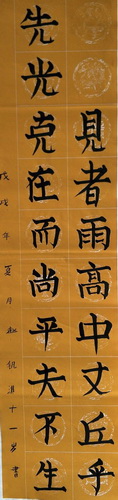 見者雨高中丈丘乎
先光克在而尚平夫不生
戊戌年夏月赵十一岁書